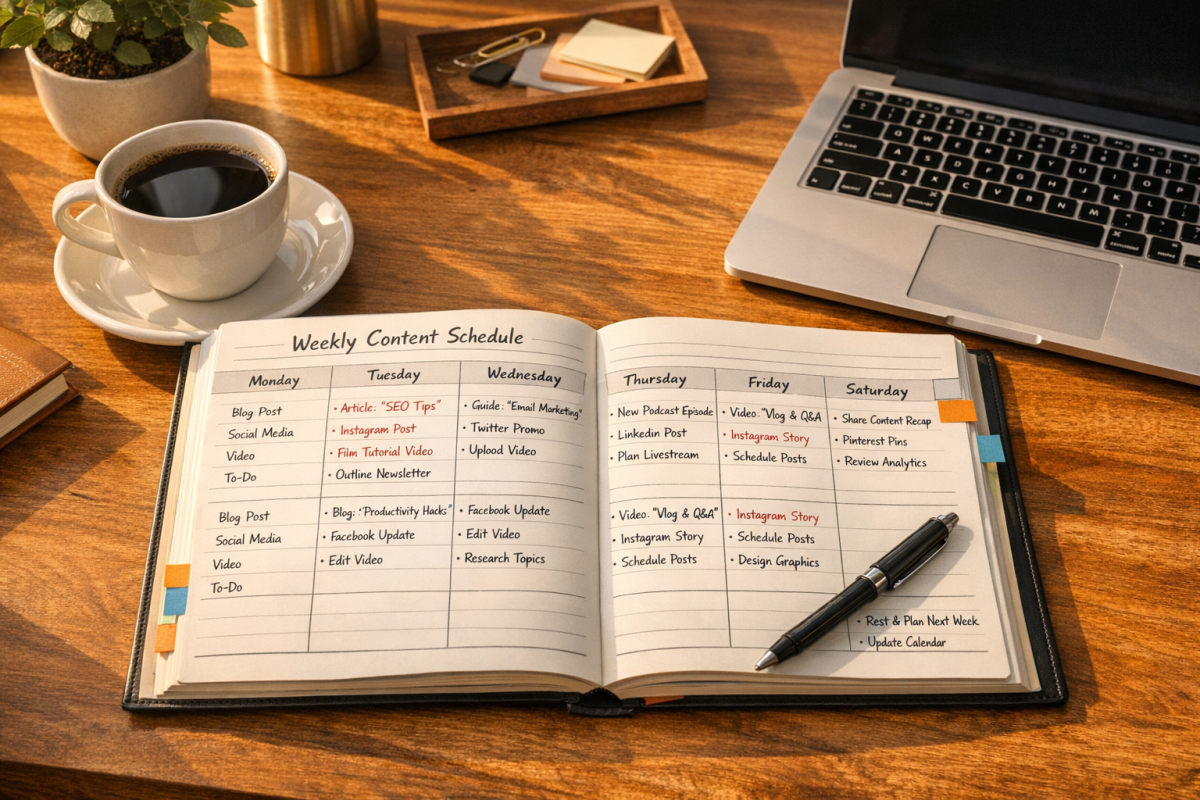 Weekly Content Schedule
Monday Tuesday Wednesday Thursday Friday Saturday
Blog Post • Article: "SEO Tips" • Guide: "Email Marketing" • New Podcast Episode • Video: "Vlog & Q&A • Share Content Recap
Social Media • Instagram Post • Twitter Promo • Linkedin Post • Instagram Story • Pinterest Pins
Video • Film Tutorial Video • Uplood Video • Plan Livestream • Schedule Posts • Review Analytics
To-Do • Outline Newsletter
Blog Post • Blog: "Productivity Hacks" • Facebook Update • Video: "Vlog & Q&A" • Instagram Story
Social Media • Facebook Update • Edit Video • Instagram Story • Schedule Posts
Video • Edit Video • Research Topics • Schedule Posts • Design Graphics
To-Do
• Rest & Plan Next Week
• Update Calendar